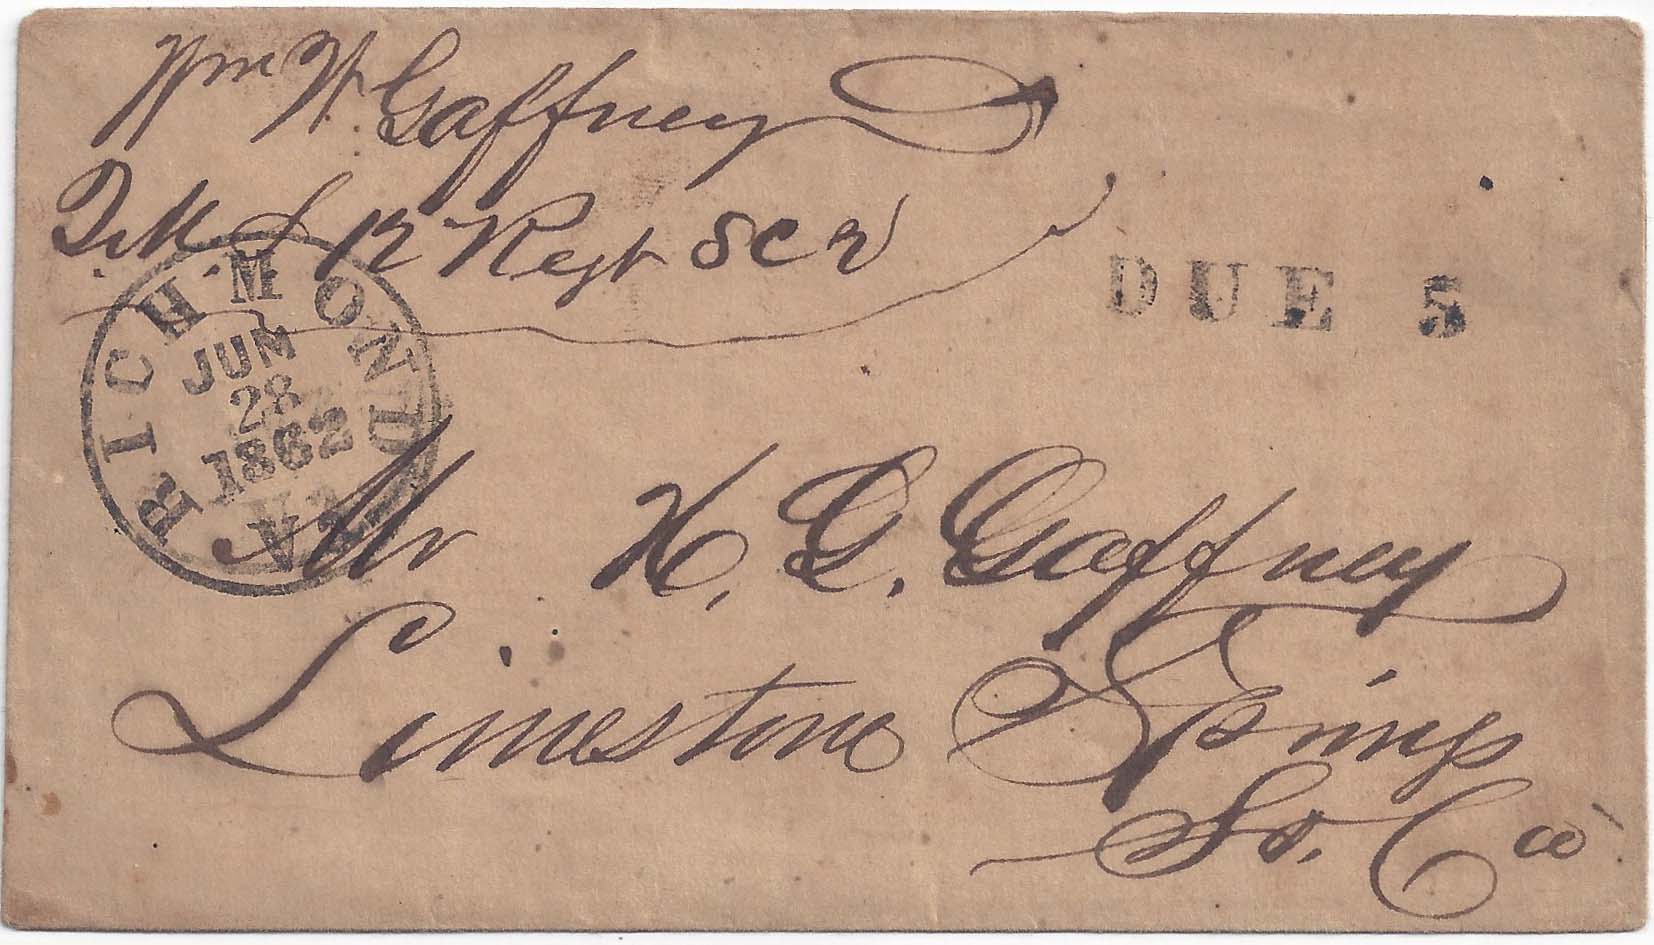 Wm H. Gaffney
Q.M. S 12 Regt S C V
DUE 5
RICHMOND
JUN
28
1862
VA.
Mr H. G. Gaffney
Limestone Springs
So. Ca